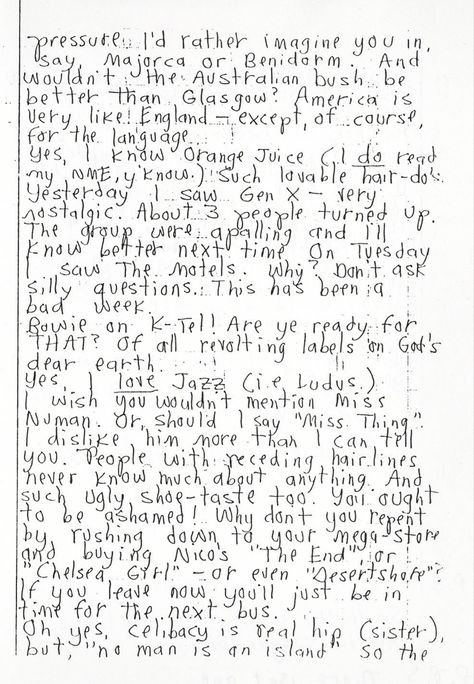 pressure. I'd rather imagine you in,
say, Majorca or Benidorm. And
wouldn't the Australian bush be
better than Glasgow? America is
very like! England – except, of course,
for the language.
Yes, I know Orange Juice (I do read
my NME, y'know.) Such lovable hair-do's.
Yesterday I saw Gen X – very
nostalgic. About 3 people turned up.
The group were apalling and I'll
know better next time. On Tuesday
I saw The Motels. Why? Don't ask
silly questions. This has been a
bad week.
Bowie on K-Tel! Are ye ready for
THAT? Of all revolting labels on God's
dear earth.
Yes, I love Jazz (i.e. Ludus.)
I wish you wouldn't mention Miss
Numan. Or, should I say "Miss Thing".
I dislike him more than I can tell
you. People with receding hairlines
never know much about anything. And
such ugly shoe-taste too. You ought
to be ashamed! Why don't you repent
by rushing down to your mega-store
and buying Nico's "The End", or
"Chelsea Girl" – or even "Desertshore"?
If you leave now you'll just be in
time for the next bus.
Oh yes, celibacy is real hip (sister),
but, "no man is an island" So the